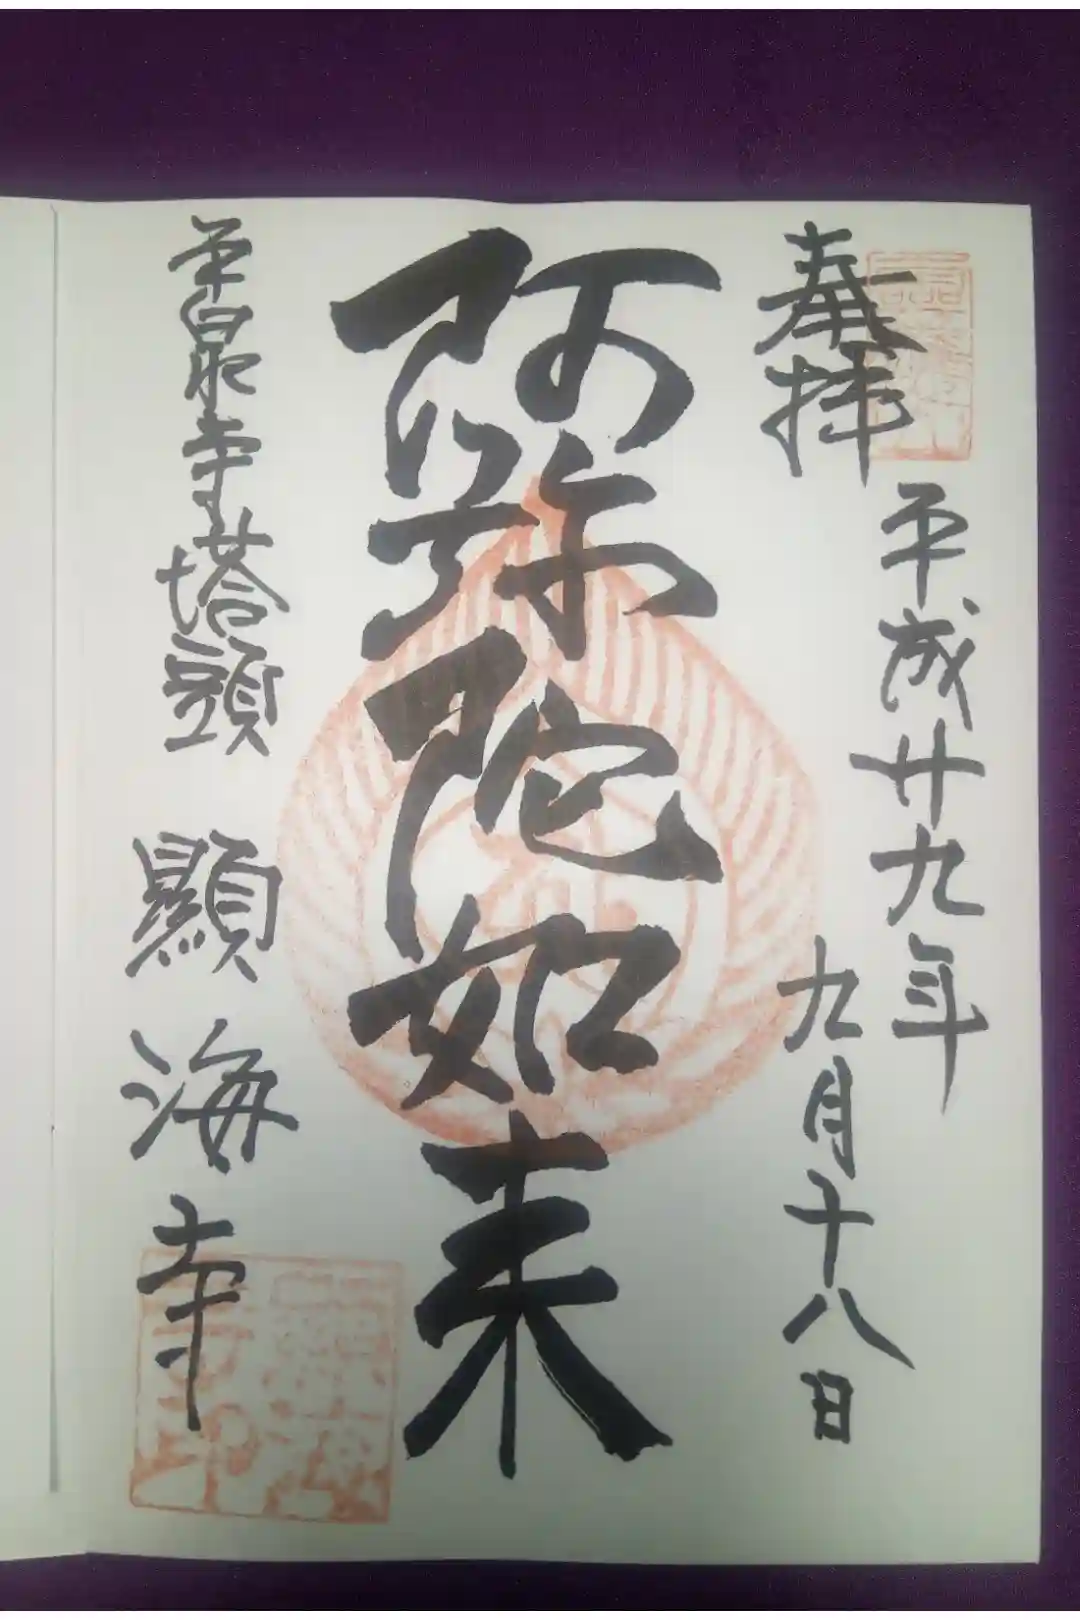 奉拝
平成廿九年
九月十八日
阿弥陀如来
泉寺塔頭
顯海寺